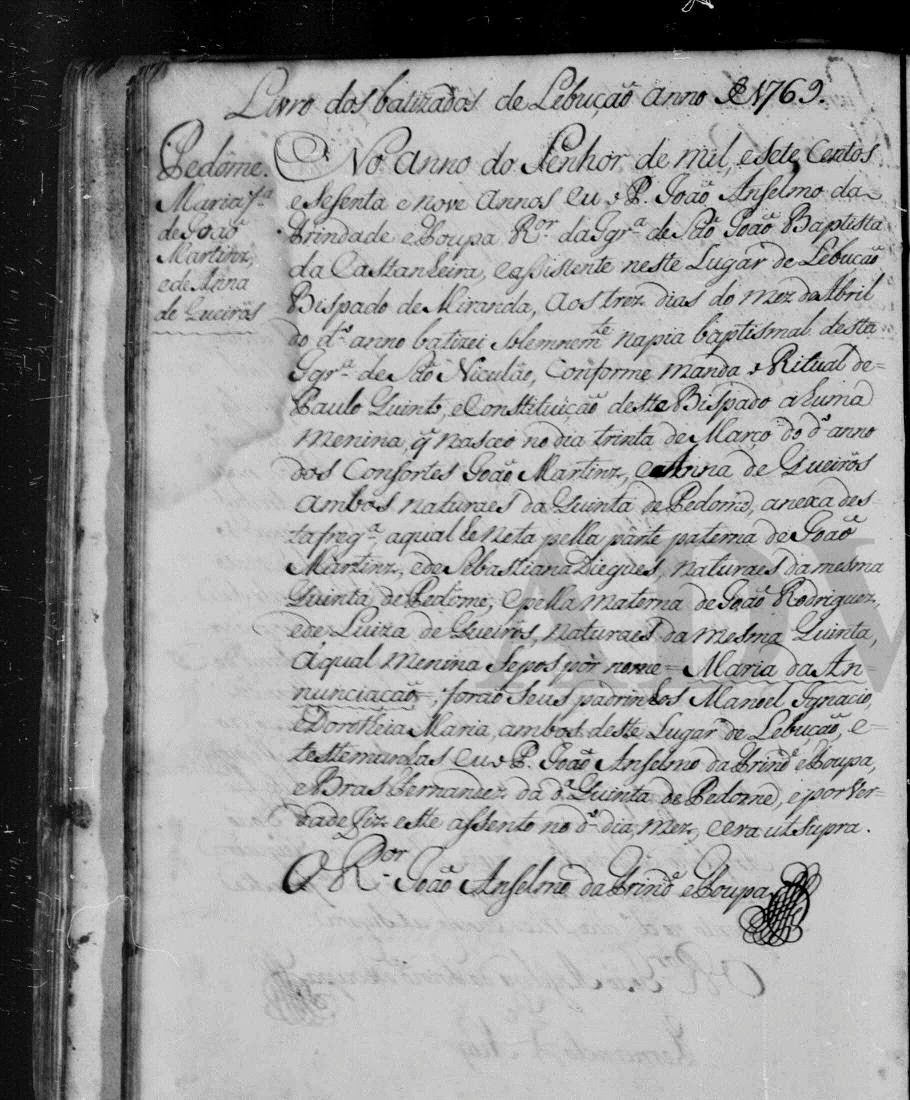 Livro dos batizados de Lebução anno de 1769.
Pedóme.
Maria fª
de João
Martinz,
e de Anna
de Queirós
No anno do Senhor de mil, e sete centos
e sesenta e nove annos eu o P. João Anselmo da
Trindade e Loupa Ror. da Igrª de São João Baptista
da Castanheira, e assistente neste Lugar de Lebução
Bispado de Miranda, aos trez dias do mez de Abril
do dº anno batizei solemnemte na pia baptismal desta
Igrª de São Niculáo, conforme manda o Ritual de=
Paulo Quinto, e Constituição deste Bispado a huma
menina, q̃ nasceo no dia trinta de Março do dº anno
dos Confortes João Martinz, e Anna de Queirós
ambos naturaes da Quinta de Pedome, anexa des
ta fregª, a qual he neta pella parte paterna de João
Martinz, e de Sebastiana Diegues, naturaes da mesma
Quinta de Pedome, e pella materna de João Rodriguez,
e de Luiza de Queirós, naturaes da mesma Quinta,
á qual menina se pos por nome= Maria da An-
nunciação=, forão seus padrinhos Manoel Ignacio,
e Dorotheia Maria, ambos deste Lugar de Lebução, e-
testemunhas eu o P. João Anselmo da Trindᵉ e Loupa,
e Bras Fernandez da dª Quinta de Pedome, e por ver-
dade fiz este assento no dº dia, mez, e era ut supra.
O Ror. João Anselmo da Trindᵉ e Loupa
ADV